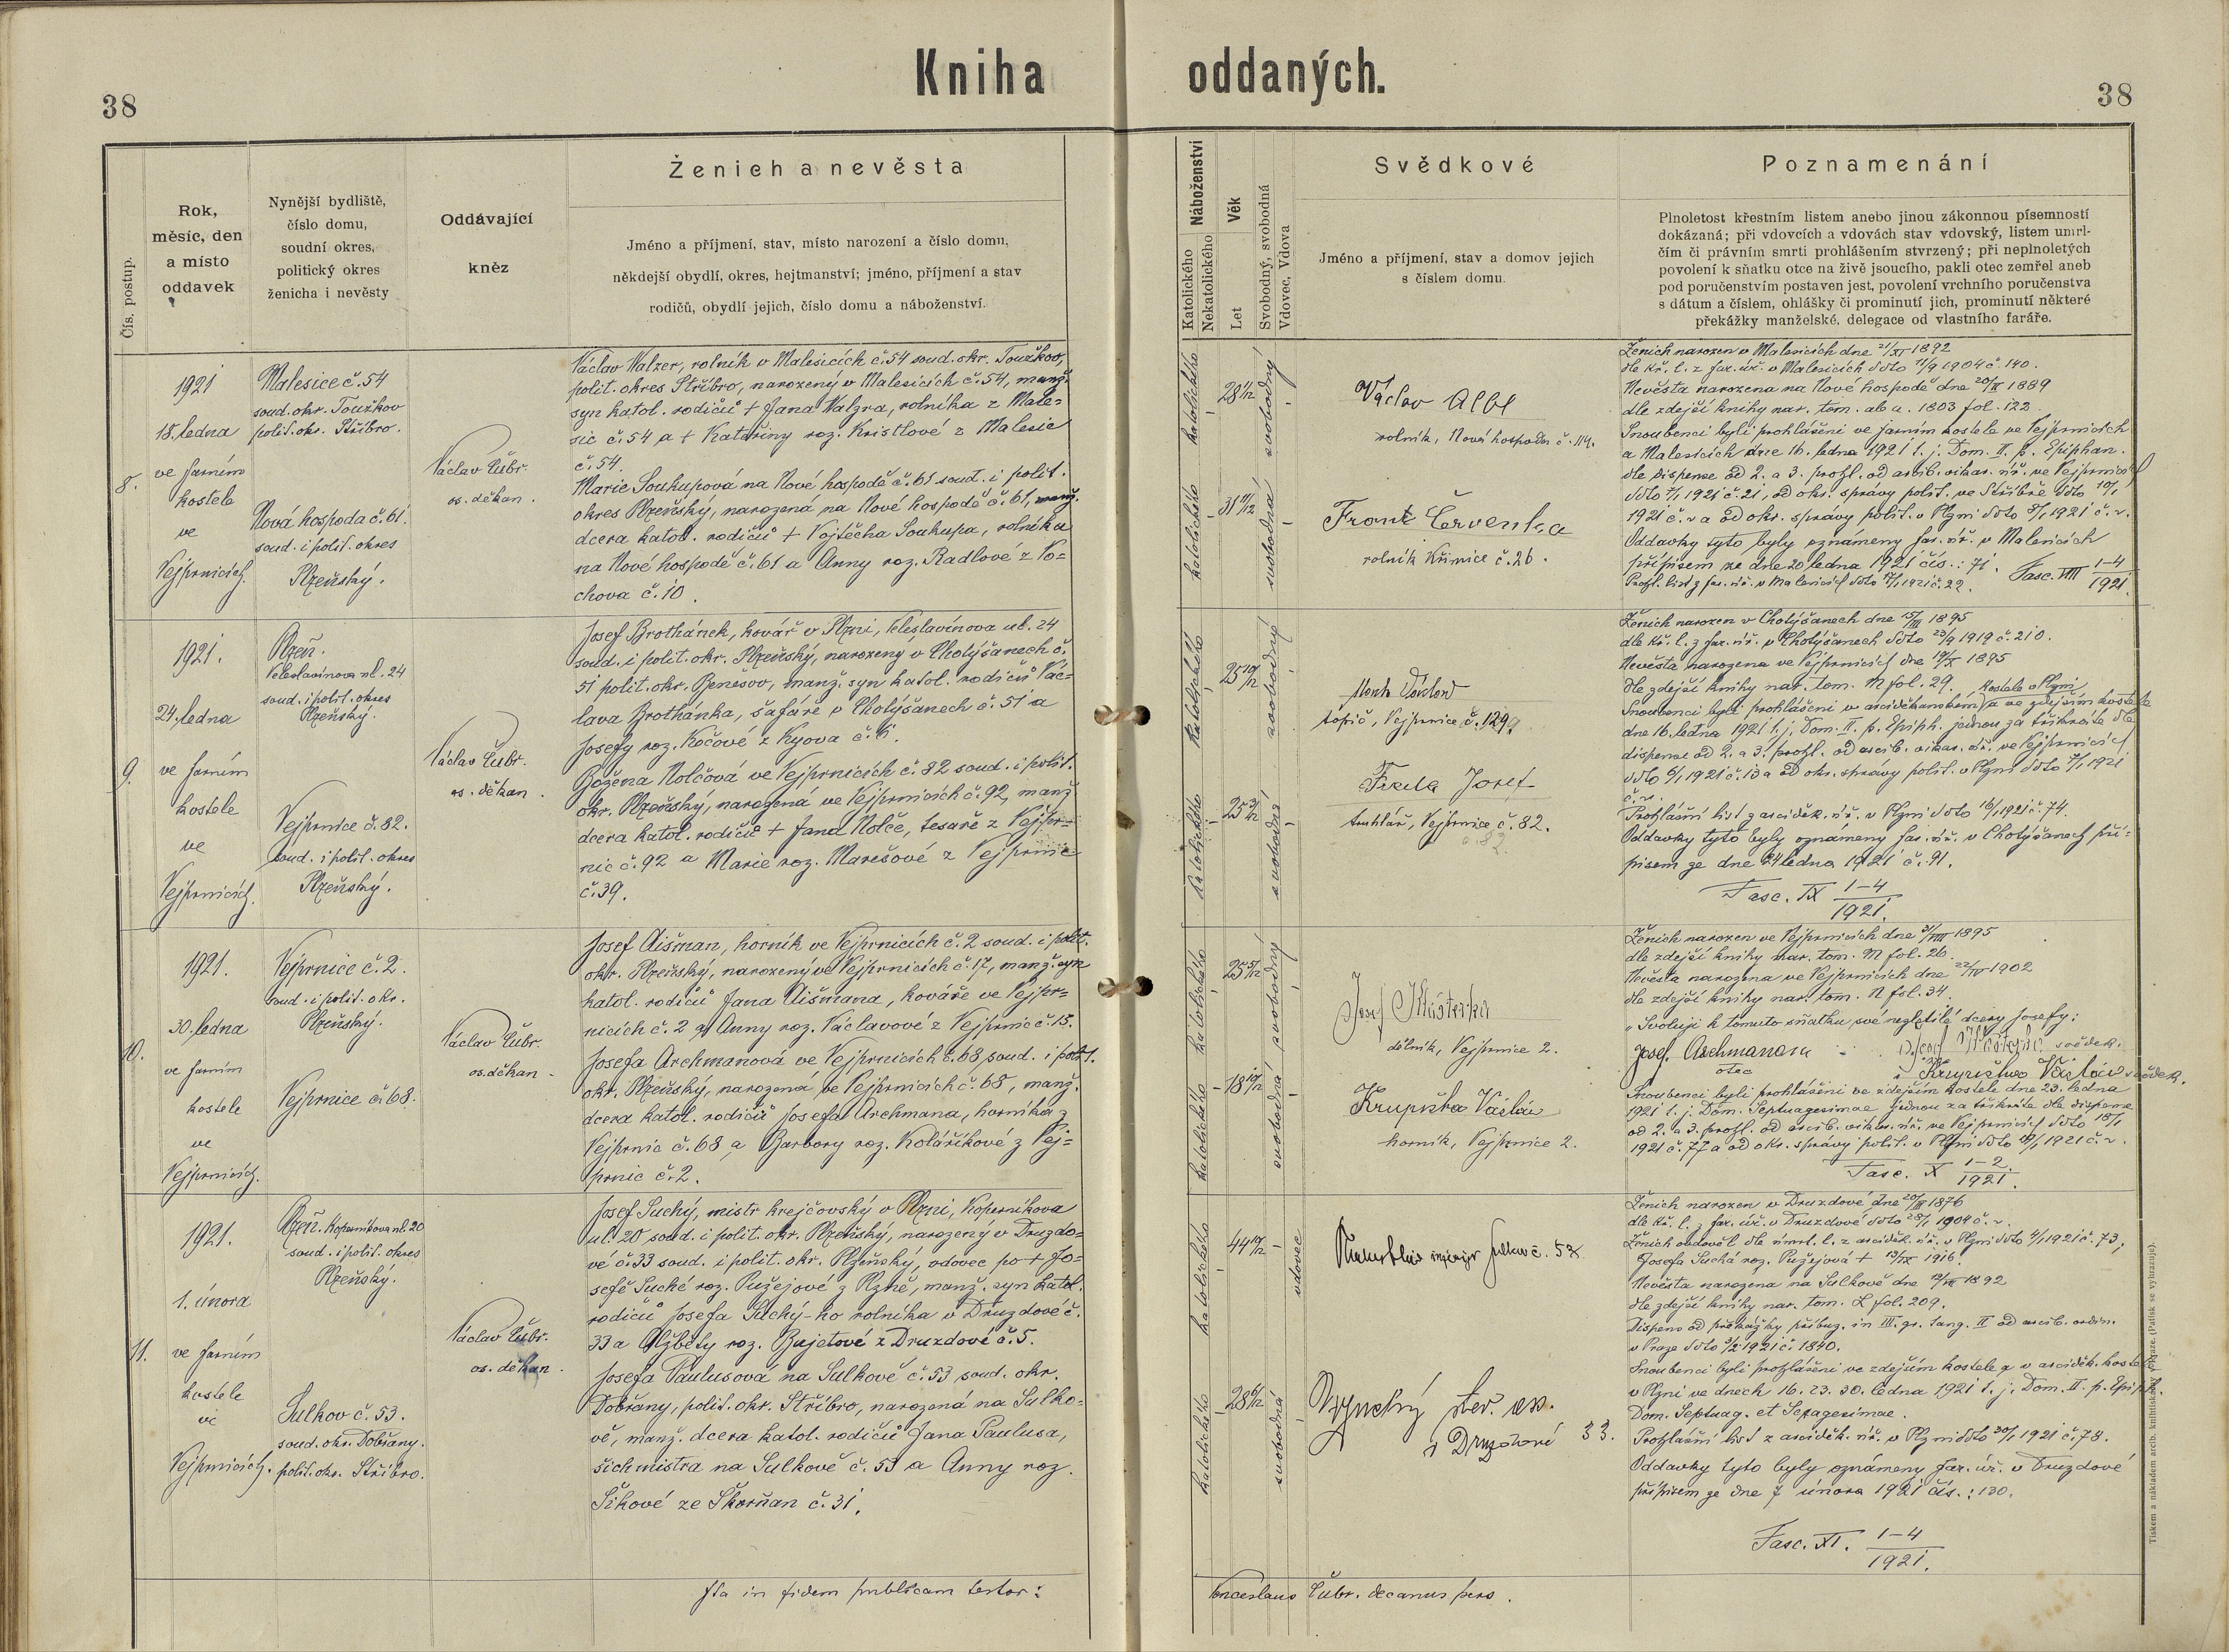 Kniha oddaných.
38
38
Čís. postup.
Rok,
měsíc, den
a místo
oddavek
Nynější bydliště,
číslo domu,
soudní okres,
politický okres
ženicha i nevěsty
Oddávající
kněz
Ženich a nevěsta
Jméno a příjmení, stav, místo narození a číslo domu,
někdejší obydlí, okres, hejtmanství; jméno, příjmení a stav
rodičů, obydlí jejich, číslo domu a náboženství.
Náboženství
Katolického
Nekatolického
Věk
Let
Svobodný, svobodná
Vdovec, Vdova
Svědkové
Jméno a příjmení, stav a domov jejich
s číslem domu.
Poznamenání
Plnoletost křestním listem anebo jinou zákonnou písemností
dokázaná; při vdovcích a vdovách stav vdovský, listem umrl-
čím či právním smrti prohlášením stvrzený; při neplnoletých
povolení k sňatku otce na živě jsoucího, pakli otec zemřel aneb
pod poručenstvím postaven jest, povolení vrchního poručenstva
s dátum a číslem, ohlášky či prominutí jich, prominutí některé
překážky manželské, delegace od vlastního faráře.
8.
1921
18. ledna
ve farním
kostele
ve
Vejprnicích.
Malesice č. 54
soud. okr. Touškov
polit. okr. Stříbro.
Nová hospoda č. 61.
soud. i polit. okres
Plzeňský.
Václav Čubr.
os. děkan.
Václav Valzer, rolník v Malesicích č. 54 soud. okr. Touškov,
polit. okres Stříbro, narozený v Malesicích č. 54, manž.
syn katol. rodičů + Jana Valzra, rolníka z Male=
sic č. 54 a + Kateřiny roz. Kristlové z Malesic
č. 54.
Marie Soukupová na Nové hospodě č. 61 soud. i polit.
okres Plzeňský, narozená na Nové hospodě č. 61, manž.
dcera katol. rodičů + Vojtěcha Soukupa, rolníka
na Nové hospodě č. 61 a Anny roz. Radlové z Vo=
chova č. 10.
katolického
28 1/12
svobodný
katolického
svobodná
Václav Albl
rolník, Nová hospoda č. 114.
Frant Červenka
rolník Křimice č. 26.
Ženich narozen v Malesicích dne 21/XI 1892
dle kř. l. z far. úř. v Malesicích ddto 11/9 1904 č. 140.
Nevěsta narozena na Nové hospodě dne
dle zdejší knihy nar. tom. ab a. 1803 fol. 122
Snoubenci byli prohlášeni ve farním kostele ve Vejprnicích
a Malesicích dne 16. ledna 1921 t. j. Dom. II. p. Epiphan.
dle dispense od 2. a 3. prohl. od arcib. vikar. úř. ve Vejprnicích
1921 č. 21, od okr. správy polit. ve Stříbře ddto
1921 č. r a od okr. správy polit. v Plzni ddto 1921 č. r.
Oddavky tyto byly oznámeny far. úř. v Malesicích
přípisem ze dne 20 ledna 1921 čís.: 71. Fasc. VIII 1-4
Prohl. list z far. úř. v Malesicích ddto 1921 č. 22. 1921.
9.
1921.
24. ledna
ve farním
kostele
ve
Vejprnicích.
Plzeň.
Veleslavínova ul. 24
soud. i polit. okres
Plzeňský.
Vejprnice č. 82.
soud. i polit. okres
Plzeňský.
Václav Čubr.
os. děkan.
Josef Brothánek, kovář v Plzni, Veleslavínova ul. 24
soud. i polit. okr. Plzeňský, narozený v Cholýšanech č.
51 polit. okr. Benešov, manž. syn katol. rodičů Vác=
lava Brothánka, šafáře v Cholýšanech č. 51 a
Josefy roz. Kočové z Kyova č. 6.
Božena Nolčová ve Vejprnicích č. 82 soud. i polit.
okr. Plzeňský, narozená ve Vejprnicích č. 92, manž
dcera katol. rodičů + Jana Nolče, tesaře z Vejpr=
nic č. 92 a Marie roz. Marešové z Vejprnic
č. 39.
katolického
25 10/12
svobodný
katolického
25 3/12
svobodná
Václav
topič, Vejprnice č. 129
Josef
truhlář, Vejprnice č. 82.
Ženich narozen v Cholýšanech dne 15/III 1895
dle kř. l. z far. úř. v Cholýšanech ddto 23/9 1919 č. 210.
Nevěsta narozena ve Vejprnicích dne 19/X 1895
dle zdejší knihy nar. tom. M fol. 29. kostele v Plzni
Snoubenci byli prohlášeni v arciděkanském a ve zdejším kostele
dne 16. ledna 1921 t. j. Dom. II. p. Epiph. jednou za třikráte dle
dispense od 2. a 3. prohl. od arcib. vikar. úř. ve Vejprnicích
ddto 1921 č. 13 a od okr. správy polit. v Plzni ddto 1921
č. r.
Prohlašní list z arciděk. úř. v Plzni ddto 16/1 1921 č. 74.
Oddavky tyto byly oznámeny far. úř. v Cholýšanech pří=
pisem ze dne 24 ledna 1921 č. 91.
Fasc. IX 1-4
1921.
10.
1921.
30. ledna
ve farním
kostele
ve
Vejprnicích.
Vejprnice č. 2.
soud. i polit. okr.
Plzeňský.
Vejprnice č. 68.
Václav Čubr.
os. děkan.
Josef Aišman, horník ve Vejprnicích č. 2 soud. i polit.
okr. Plzeňský, narozený ve Vejprnicích č. 17, manž. syn
katol. rodičů Jana Aišmana, kováře ve Vejpr=
nicích č. 2 a Anny roz. Václavové z Vejprnic č. 15.
Josefa Archmanová ve Vejprnicích č. 68, soud. i polit.
okr. Plzeňský, narozená ve Vejprnicích č. 68, manž.
dcera katol. rodičů Josefa Archmana, horníka z
Vejprnic č. 68 a Barbory roz. Kolaříkové z Vej=
prnic č. 2.
katolického
25 5/12
svobodný
katolického
svobodná
Josef
dělník, Vejprnice 2.
Krupička Václav
horník, Vejprnice 2.
Ženich narozen ve Vejprnicích dne 31/VIII 1895
dle zdejší knihy nar. tom. M fol. 26.
Nevěsta narozena ve Vejprnicích dne 22/IV 1902
dle zdejší knihy nar. tom. N fol. 34.
"Svoluji k tomuto sňatku své nezletilé dcery Josefy:
Josef. Archmanom Josef svědek.
otec Václav svědek.
Snoubenci byli prohlášeni ve zdejším kostele dne 23. ledna
1921 t. j. Dom. Septuagesimae jednou za třikráte dle dispense
od 2. a 3. prohl. od arcib. vikar. úř. ve Vejprnicích ddto 18/1
1921 č. 77 a od okr. správy polit. v Plzni ddto 1921 č. r.
Fasc. X 1-2.
1921.
11.
1921.
1. února
ve farním
kostele
ve
Vejprnicích.
Plzeň. Koperníkova ul. 20
soud. i polit. okres
Plzeňský.
Sulkov č. 53.
soud. okr. Dobřany.
polit. okr. Stříbro.
Václav Čubr.
os. děkan.
Josef Suchý, mistr krejčovský v Plzni, Koperníkova
ul. 20 soud. i polit. okr. Plzeňský, narozený v Druzdo=
vé č. 33 soud. i polit. okr. Plzeňský, vdovec po + Jo=
sefě Suché roz. Pužejové z Plzně, manž. syn katol.
rodičů Josefa Suchý-ho rolníka v Druzdové č.
33 a Alžběty roz. Bujetové z Druzdové č. 5.
Josefa Paulusová na Sulkově č. 53 soud. okr.
Dobřany, polit. okr. Stříbro, narozená na Sulko=
vě, manž. dcera katol. rodičů Jana Paulusa,
šichmistra na Sulkově č. 53 a Anny roz.
Šikové ze Škorňan č. 31.
katolického
44 10/12
vdovec
katolického
svobodná
Sulkov č. 5
z Druzdové 33.
Ženich narozen v Druzdové dne 1876
dle kř. l. z far. úř. v Druzdové ddto 1904 č. r.
Ženich ovdověl dle úmrt. l. z arciděk. úř. v Plzni ddto 1921 č. 73;
Josefa Suchá roz. Pužejová + 13/IX 1916.
Nevěsta narozena na Sulkově dne 1892
dle zdejší knihy nar. tom. L fol. 209.
Dispens od překážky příbuz. in III. gr. tang. II od arcib. ordin.
v Praze ddto 1921 č. 1840.
Snoubenci byli prohlášeni ve zdejším kostele a v arciděk. kostele
v Plzni ve dnech 16. 23. 30. ledna 1921 t. j. Dom. II. p. Epiph.
Dom. Septuag. et Sexagesimae.
Prohlašní list z arciděk. úř. v Plzni ddto 30/1 1921 č. 78.
Oddavky tyto byly oznámeny far. úř. v Druzdové
přípisem ze dne 7 února 1921 čís.: 130.
Fasc. XI. 1-4
1921.
Ita in fidem publicam testor: Venceslaus Čubr. decanus pers.
Tiskem a nákladem arcib. knihtiskárny v Praze. (Patisk se vyhrazuje).